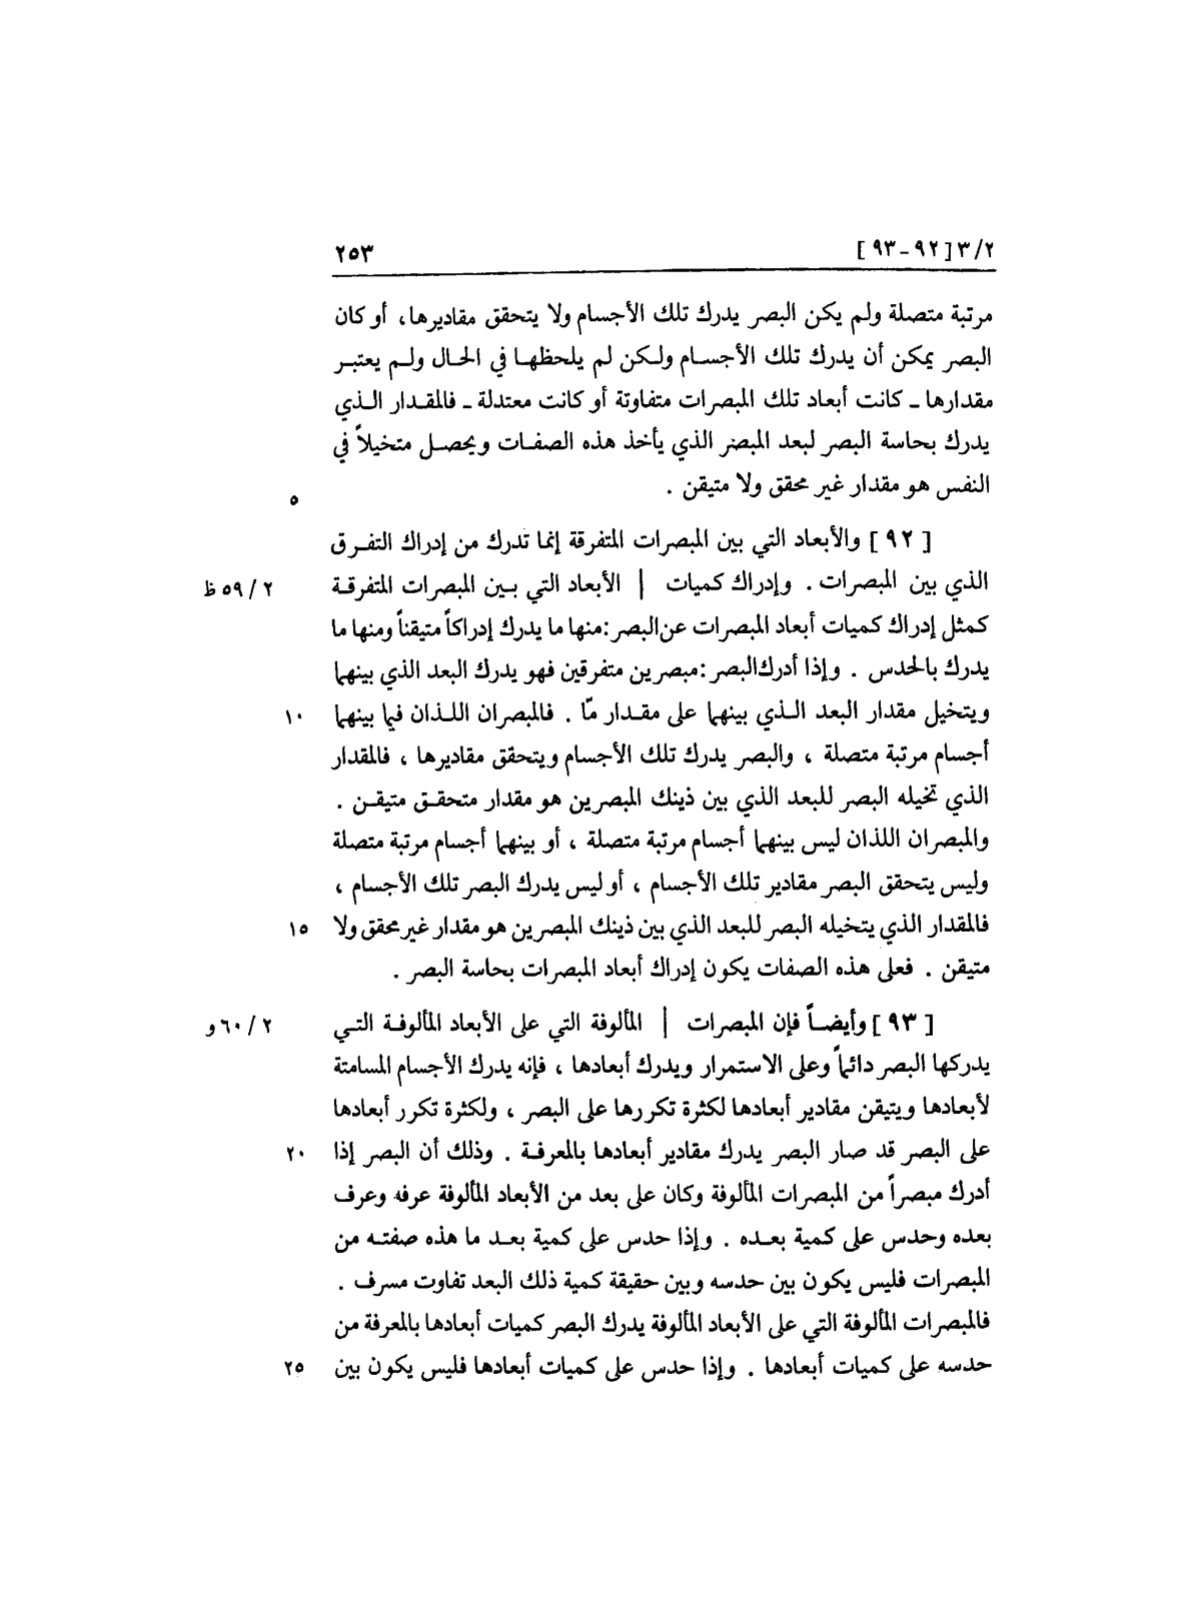 ٢/٣ [٩٢-٩٣] ٢٥٣
مرتبة متصلة ولم يكن البصر يدرك تلك الأجسام ولا يتحقق مقاديرها، أو كان
البصر يمكن أن يدرك تلك الأجسام ولكن لم يلحظها في الحال ولم يعتبر
مقدارها ـ كانت أبعاد تلك المبصرات متفاوتة أو كانت معتدلة ـ فالمقدار الذي
يدرك بحاسة البصر لبعد المبصر الذي يأخذ هذه الصفات ويحصل متخيلاً في
النفس هو مقدار غير محقق ولا متيقن . ٥
[ ٩٢ ] والأبعاد التي بين المبصرات المتفرقة إنما تدرك من إدراك التفرق
الذي بين المبصرات . وإدراك كميات | الأبعاد التي بين المبصرات المتفرقة ٢ / ٥٩ ظ
كمثل إدراك كميات أبعاد المبصرات عن البصر: منها ما يدرك إدراكاً متيقناً ومنها ما
يدرك بالحدس . وإذا أدرك البصر: مبصرين متفرقين فهو يدرك البعد الذي بينهما
ويتخيل مقدار البعد الذي بينهما على مقدار مّا . فالمبصران اللذان فيما بينهما ١٠
أجسام مرتبة متصلة ، والبصر يدرك تلك الأجسام ويتحقق مقاديرها ، فالمقدار
الذي تخيله البصر للبعد الذي بين ذينك المبصرين هو مقدار متحقق متيقن .
والمبصران اللذان ليس بينهما أجسام مرتبة متصلة ، أو بينهما أجسام مرتبة متصلة
وليس يتحقق البصر مقادير تلك الأجسام ، أو ليس يدرك البصر تلك الأجسام ،
فالمقدار الذي يتخيله البصر للبعد الذي بين ذينك المبصرين هو مقدار غير محقق ولا ١٥
متيقن . فعلى هذه الصفات يكون إدراك أبعاد المبصرات بحاسة البصر .
[ ٩٣ ] وأيضاً فإن المبصرات | المألوفة التي على الأبعاد المألوفة التي ٢ / ٦٠ و
يدركها البصر دائماً وعلى الاستمرار ويدرك أبعادها ، فإنه يدرك الأجسام المسامتة
لأبعادها ويتيقن مقادير أبعادها لكثرة تكررها على البصر ، ولكثرة تكرر أبعادها
على البصر قد صار البصر يدرك مقادير أبعادها بالمعرفة . وذلك أن البصر إذا ٢٠
أدرك مبصراً من المبصرات المألوفة وكان على بعد من الأبعاد المألوفة عرفه وعرف
بعده وحدس على كمية بعده . وإذا حدس على كمية بعد ما هذه صفته من
المبصرات فليس يكون بين حدسه وبين حقيقة كمية ذلك البعد تفاوت مسرف .
فالمبصرات المألوفة التي على الأبعاد المألوفة يدرك البصر كميات أبعادها بالمعرفة من
حدسه على كميات أبعادها . وإذا حدس على كميات أبعادها فليس يكون بين ٢٥